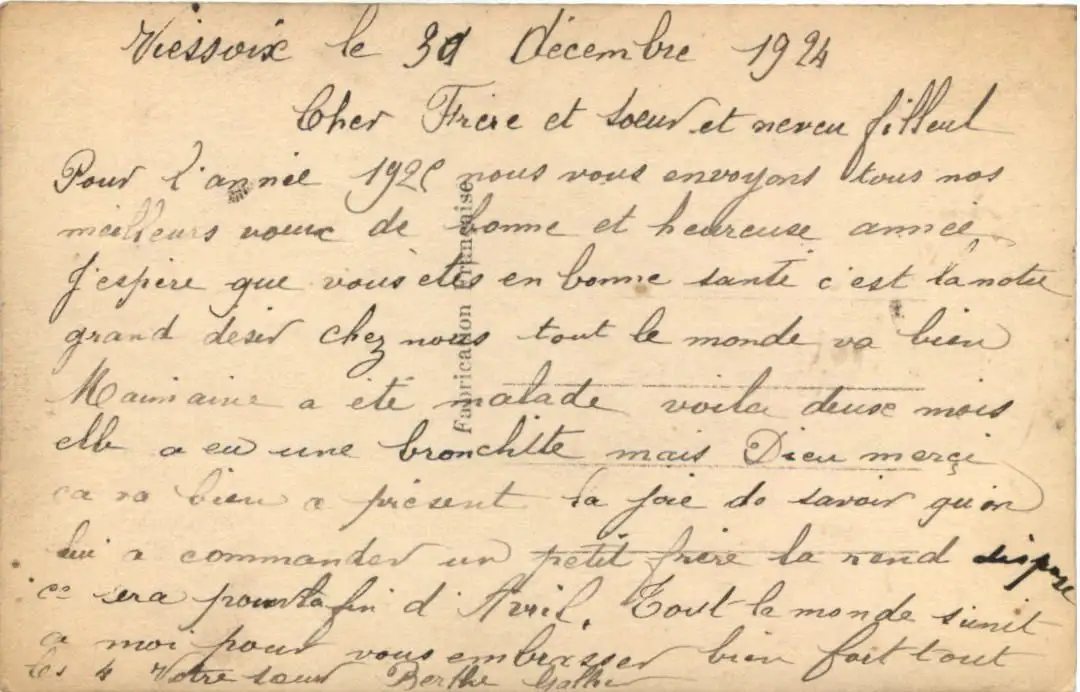 Viessoix le 30 décembre 1924
Cher Frère et soeur et neveu filleul
Pour l'année 1925 nous vous envoyons tous nos
meilleurs voeux de bonne et heureuse année
J'espère que vous êtes en bonne santé c'est la notre
grand désir chez nous tout le monde va bien
a été malade voila deux mois
elle a eu une bronchite mais Dieu merçi
ca va bien a présent la joie de savoir qu'on
lui a commander un petit frère la rend
ce sera pour la fin d'Avril. Tout le monde s'unit
a moi pour vous embrasser bien fort tout
les 4 Votre soeur Berthe
Fabrication Française